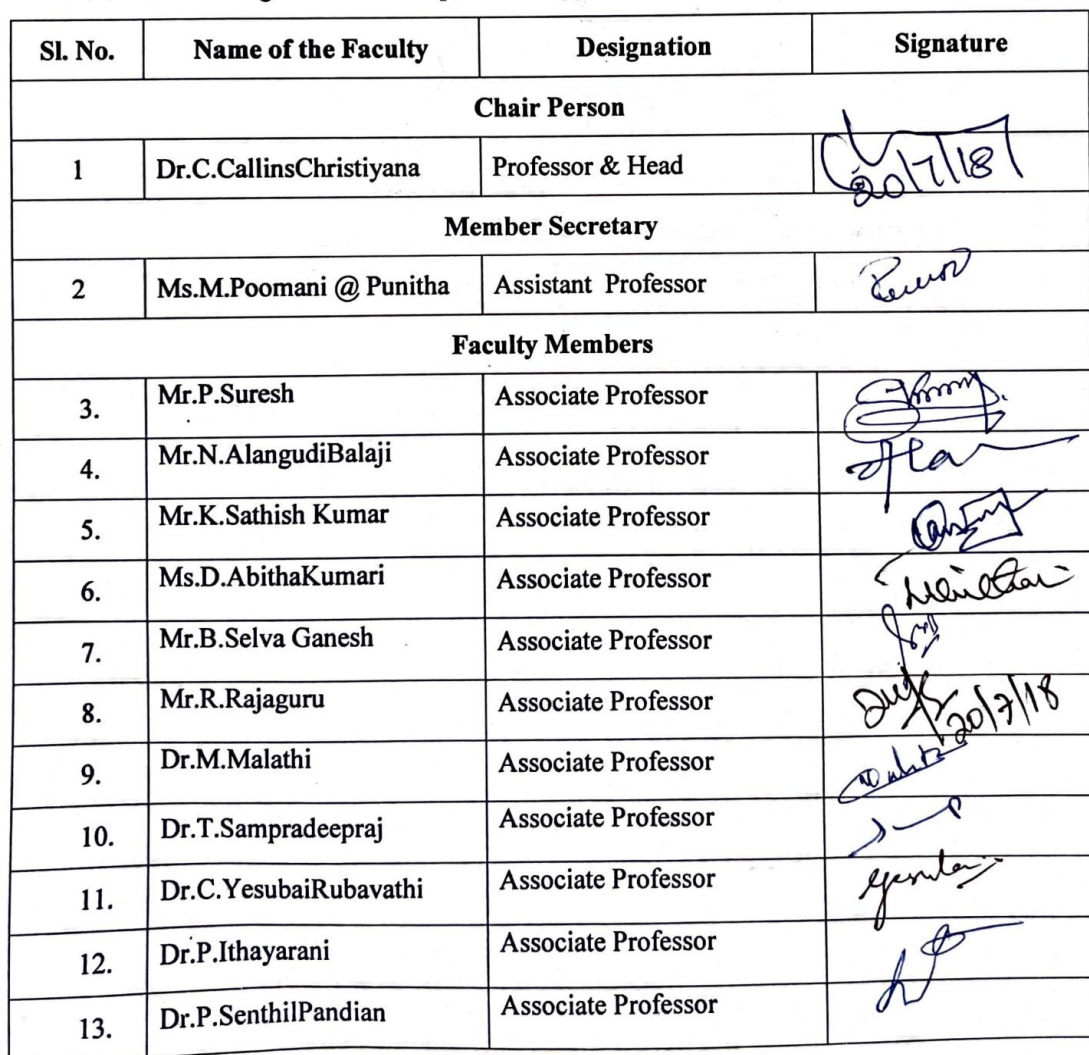 Sl. No. Name of the Faculty Designation Signature
Chair Person
1 Dr.C.CallinsChristiyana Professor & Head 20/7/18
Member Secretary
2 Ms.M.Poomani @ Punitha Assistant Professor
Faculty Members
3. Mr.P.Suresh Associate Professor
4. Mr.N.AlangudiBalaji Associate Professor
5. Mr.K.Sathish Kumar Associate Professor
6. Ms.D.AbithaKumari Associate Professor
7. Mr.B.Selva Ganesh Associate Professor
8. Mr.R.Rajaguru Associate Professor 20/7/18
9. Dr.M.Malathi Associate Professor
10. Dr.T.Sampradeepraj Associate Professor
11. Dr.C.YesubaiRubavathi Associate Professor
12. Dr.P.Ithayarani Associate Professor
13. Dr.P.SenthilPandian Associate Professor